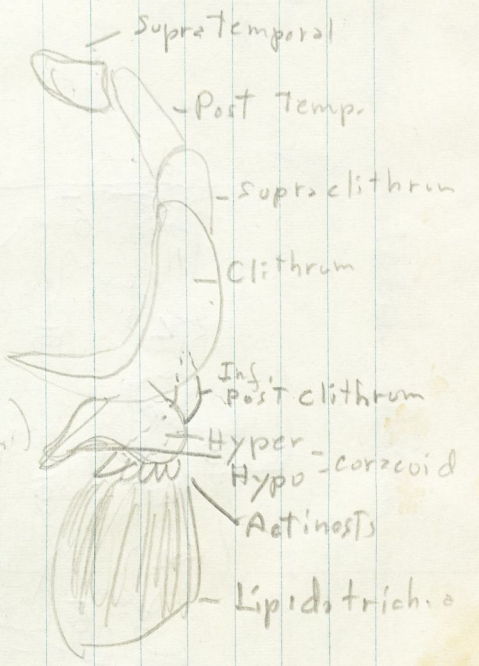 Supratemporal
Post Temp.
Supraclithrum
Clithrum
Inf.
Post clithrum
Hyper
Hypo -coracoid
Actinosts
Lipidotrichia